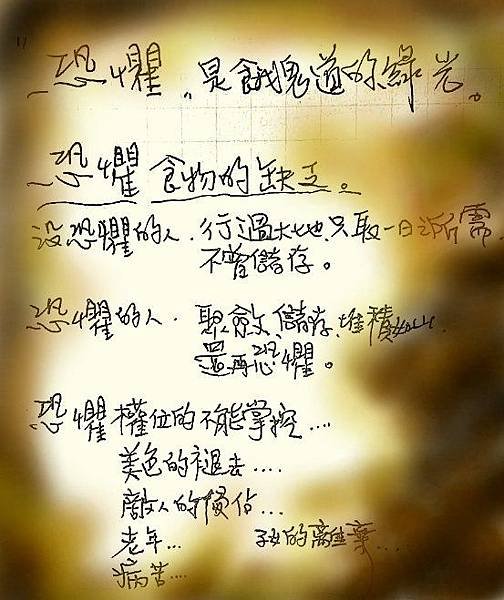 恐懼，是餓鬼道的綠光。
恐懼食物的缺乏。
沒恐懼的人，行過大地，只取一日之所需，
不曾儲存。
恐懼的人，聚斂、儲存、堆積如山，
還再恐懼。
恐懼權位的不能掌控....
美色的褪去....
敵人的侵佔...
老年... 子女的離棄....
病苦....